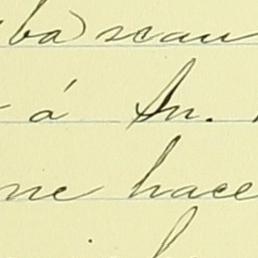 ba) sean
á Sn.
ne hace